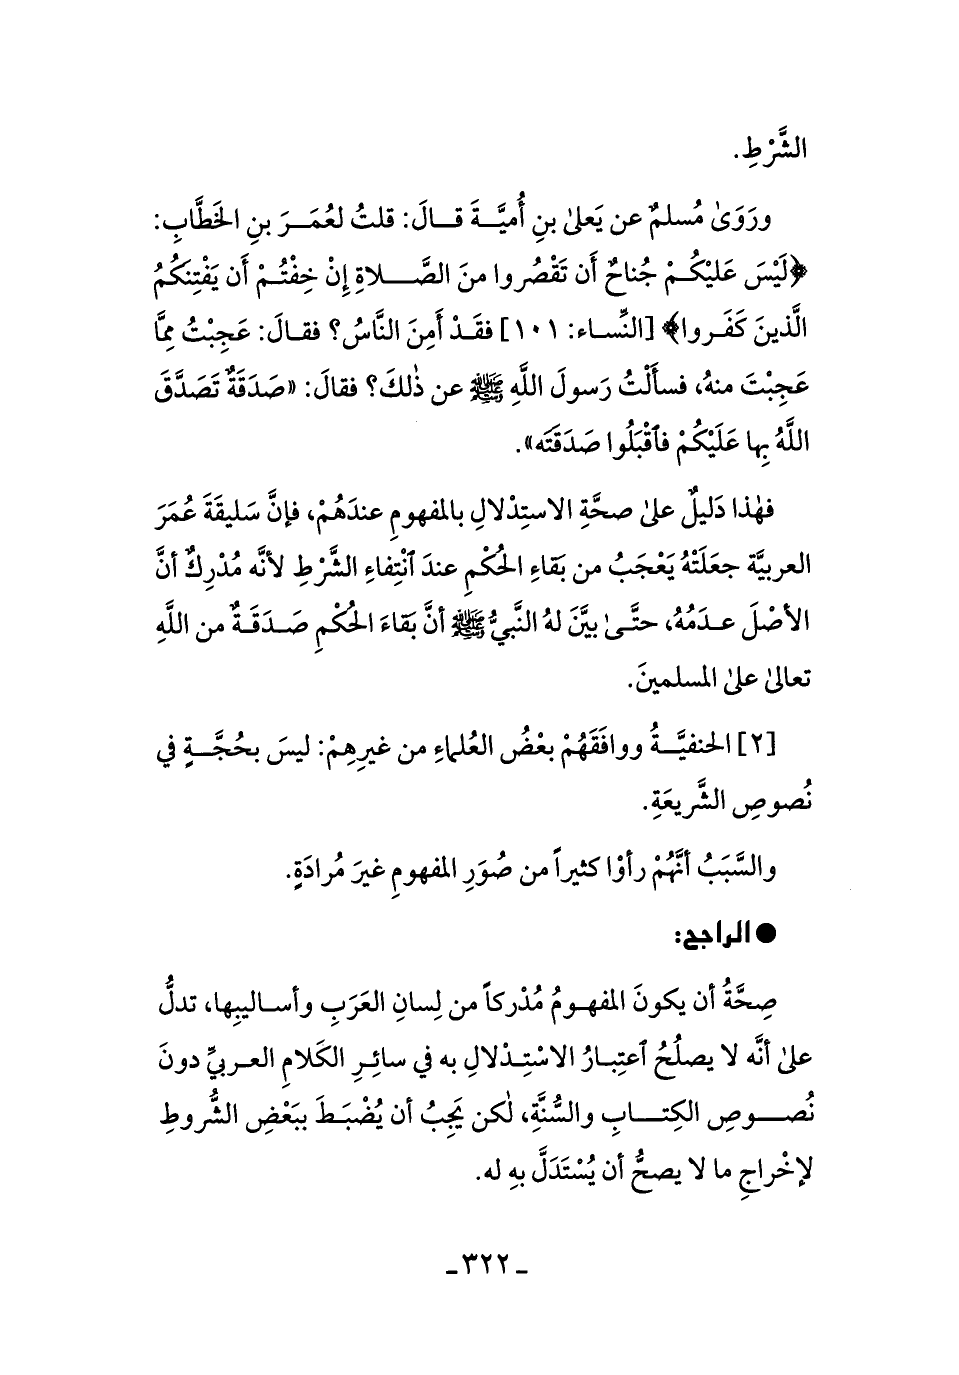 الشَّرْطِ.
ورَوَىٰ مُسلمٌ عن يَعلىٰ بنِ أُميَّـةَ قـالَ: قلتُ لعُمَـرَ بنِ الخَطَّابِ:
﴿لَيْسَ عَليْكُـمْ جُناحٌ أَن تَقْصُروا منَ الصَّـــلاةِ إِنْ خِفْتُـمْ أَن يَفْتِنَكُمُ
الَّذينَ كَفَـروا﴾ [النِّسـاء: ١٠١] فقَـدْ أَمِنَ النَّاسُ؟ فقـالَ: عَجِبْتُ مِمَّا
عَجِبْتَ منهُ، فسأَلْتُ رَسولَ اللَّهِ ﷺ عن ذٰلكَ؟ فقالَ: «صَدَقَةٌ تَصَدَّقَ
اللَّهُ بِها عَلَيْكُمْ فٱقْبَلُوا صَدَقَتَه».
فهٰذا دَليلٌ علىٰ صحَّةِ الاستِدْلالِ بالمفهومِ عندَهُمْ، فإنَّ سَليقَةَ عُمَرَ
العربيَّة جعلَتْهُ يَعْجَبُ من بَقاءِ الحُكْمِ عندَ ٱنْتِفاءِ الشَّرْطِ لأنَّه مُدْرِكٌ أنَّ
الأصْلَ عـدَمُهُ، حتَّـىٰ بيَّنَ لهُ النَّبيُّ ﷺ أنَّ بَقاءَ الحُكْمِ صَـدَقَـةٌ من اللَّهِ
تعالىٰ علىٰ المسلمينَ.
[٢] الحنفيَّـةُ ووافَقَهُمْ بعْضُ العُلماءِ من غيرِهِمْ: ليسَ بحُجَّـةٍ في
نُصوصِ الشَّريعَةِ.
والسَّبَبُ أنَّهُمْ رأوْا كثيراً من صُوَرِ المفهومِ غيرَ مُرادَةٍ.
● الراجح:
صِحَّةُ أن يكونَ المفهـومُ مُدْركاً من لِسانِ العَرَبِ وأسـاليبِها، تدلُّ
علىٰ أنَّه لا يصلُحُ ٱعتِبـارُ الاسْتِـدْلالِ به في سائِـرِ الكَلامِ العـربيِّ دونَ
نُصـــوصِ الكِتـــابِ والسُّنَّةِ، لٰكن يَجِبُ أن يُضْبَـطَ ببَعْضِ الشُّروطِ
لإخْراجِ ما لا يصحُّ أن يُسْتَدَلَّ بهِ له.
ـ ٣٢٢ ـ